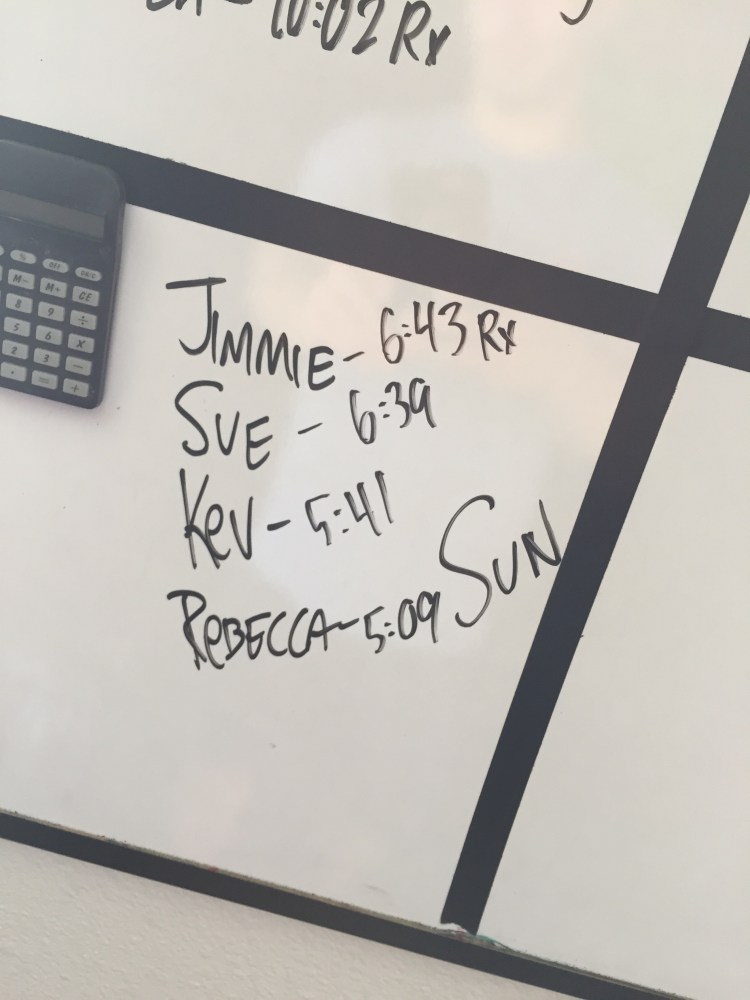 10:02 Rx
JIMMIE - 6:43 Rx
SUE - 6:39
KEV - 5:41
REBECCA - 5:09
SUN
M- M+ CE
8 9 ÷
5 6 X
2 3 -
. = +